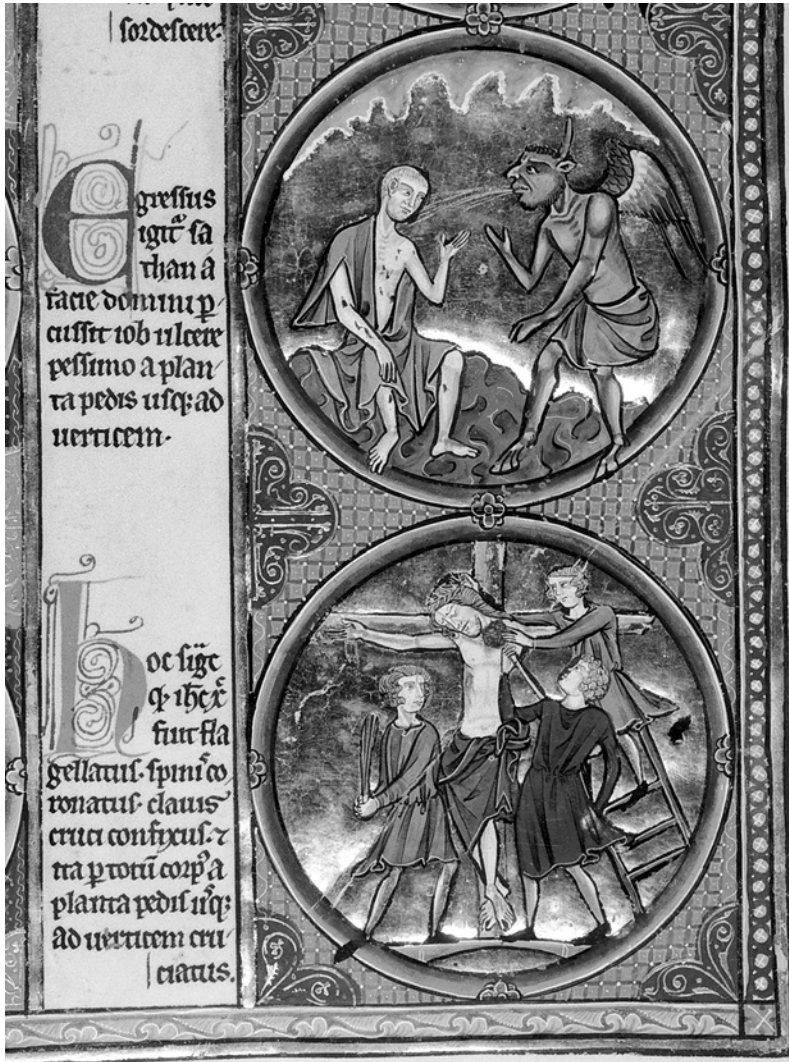 sordescere·
Egressus
igit᷑ sa
than a
facie domini p̱-
cussit iob ulcere
pessimo a plan-
ta pedis usq᷒ ad
uerticem·
hoc sig᷑t
ꝙ ihc̄ xp̄
fuit fla
gellatus· spinis co
ronatus· clauis
cruci confixus· ⁊
ita ꝑ totū corpꝰ a
planta pedis usq᷒
ad uerticem cru-
ciatus.